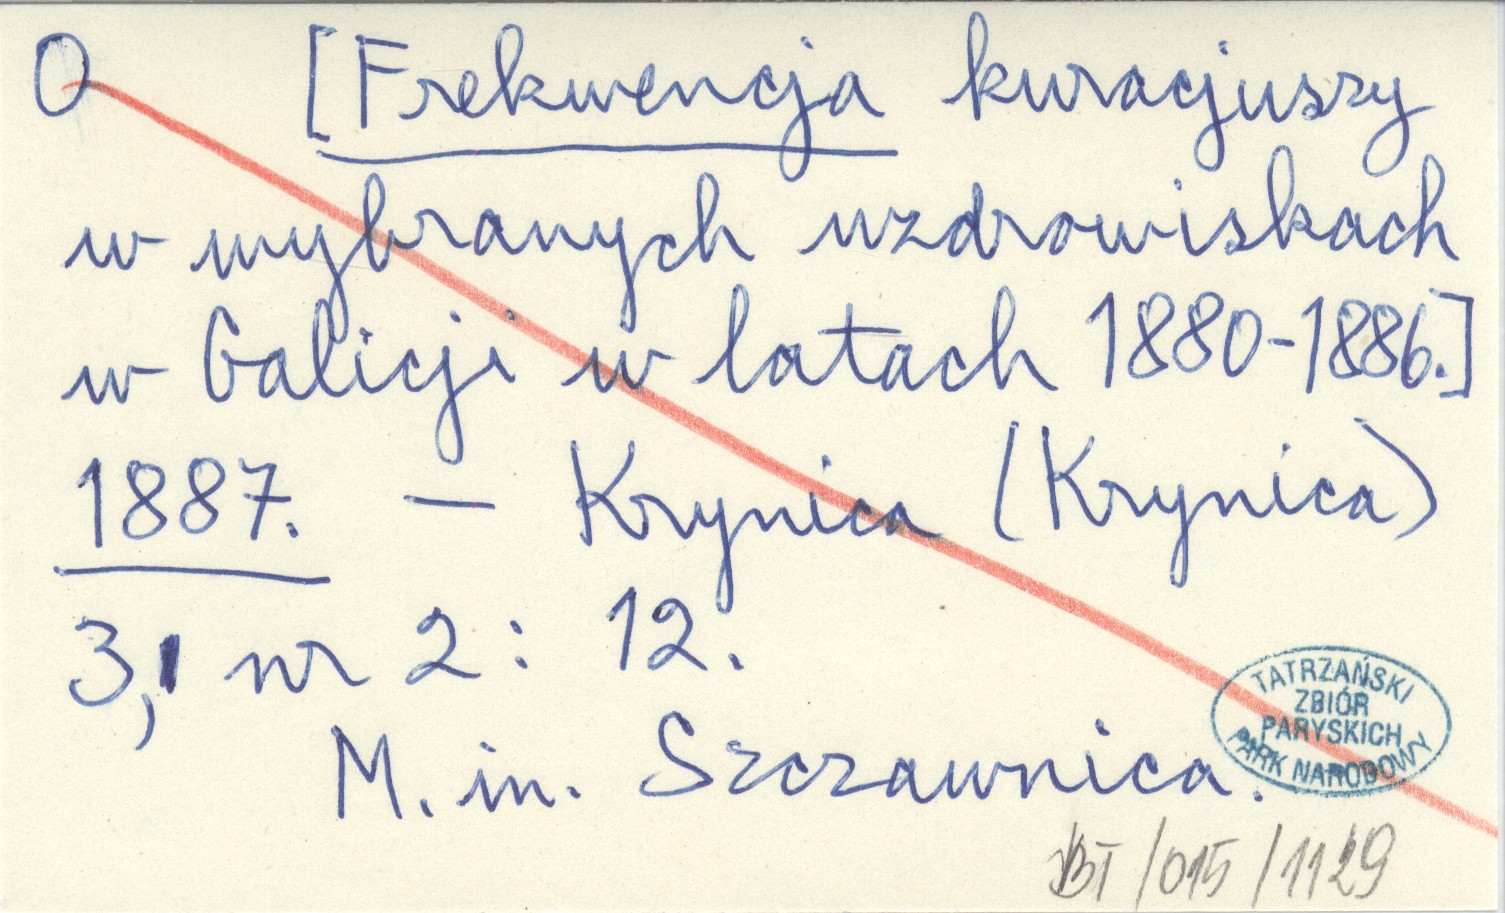 O [Frekwencja kuracjuszy
w wybranych uzdrowiskach
w Galicji w latach 1880-1886.]
1887. — Krynica (Krynica)
3, nr 2: 12.
M. in. Szczawnica.
TATRZAŃSKI
ZBIÓR
PARYSKICH
PARK NARODOWY
BT/015/1129